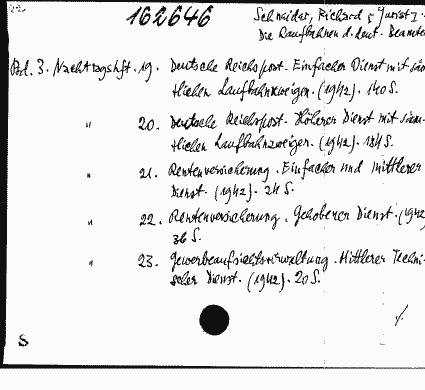 162646
Schneider, Richard; Jurist I.
Die Laufbahnen d. deut. Beamten
Bd. 3. Nachtragshft. 19. Deutsche Reichspost. Einfacher Dienst mit säm-
tlichen Laufbahnzweigen. (1942). 140 S.
" 20. Deutsche Reichspost. Höherer Dienst mit säm-
tlichen Laufbahnzweigen. (1942). 184 S.
" 21. Rentenversicherung. Einfacher und mittlerer
Dienst. (1942). 24 S.
" 22. Rentenversicherung. Gehobener Dienst. (1942
36 S.
" 23. Gewerbeaufsichtsverwaltung. Mittlerer Techni-
scher Dienst. (1942). 20 S.
S